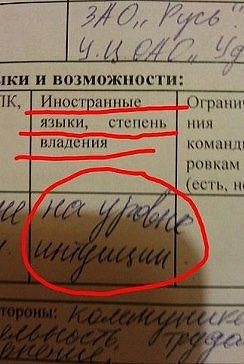 ЗАО „Русь"
У.Ц ОАО „Уд
ыки и возможности:
ПК, Иностранные Ограни
языки, степень ния
владения команд
ровкам
(есть, н
на уровне
интуиции
тороны: коммуника
ельность, труда